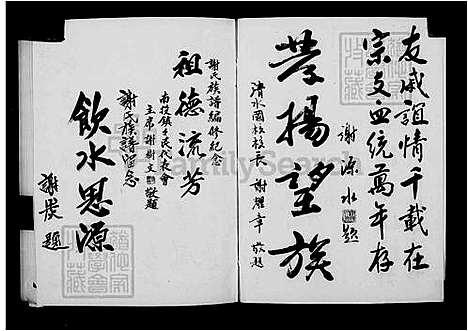 友戚誼情千載在
宗支血統萬年存
謝深水題
榮揚望族
清水國校校長 謝耀章 敬題
謝氏族譜編修紀念
祖德流芳
南投鎮民代表會
主席謝樹文敬題
謝氏族譜留念
飲水思源
謝炭題
FamilySearch